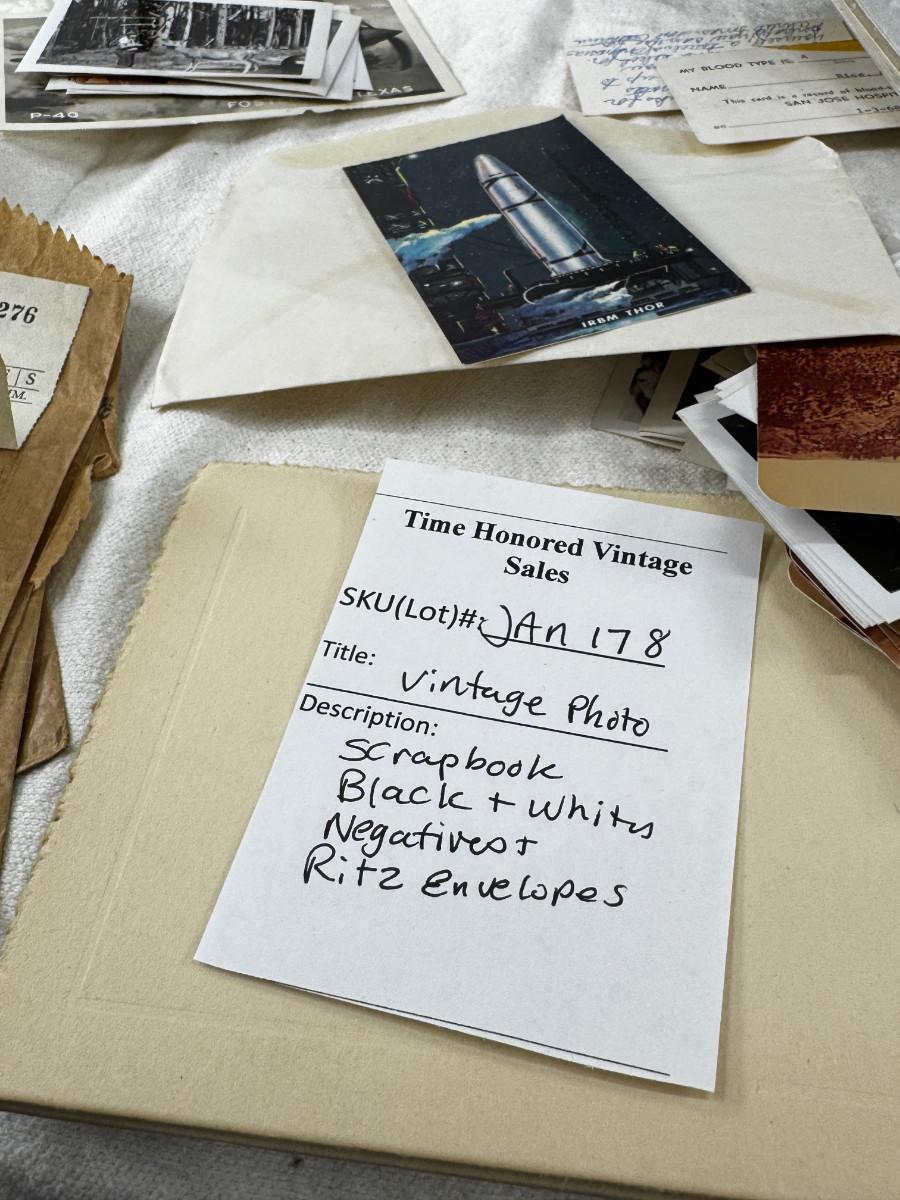 P-40
FOS
EXAS
MY BLOOD TYPE IS A
NAME
This card is a record of blood
SAN JOSE HOSPI
1-3-68
IRBM THOR
276
S
Time Honored Vintage
Sales
SKU(Lot)#: JAn 178
Title:
Vintage Photo
Description:
Scrapbook
Black + Whites
Negatives +
Ritz Envelopes